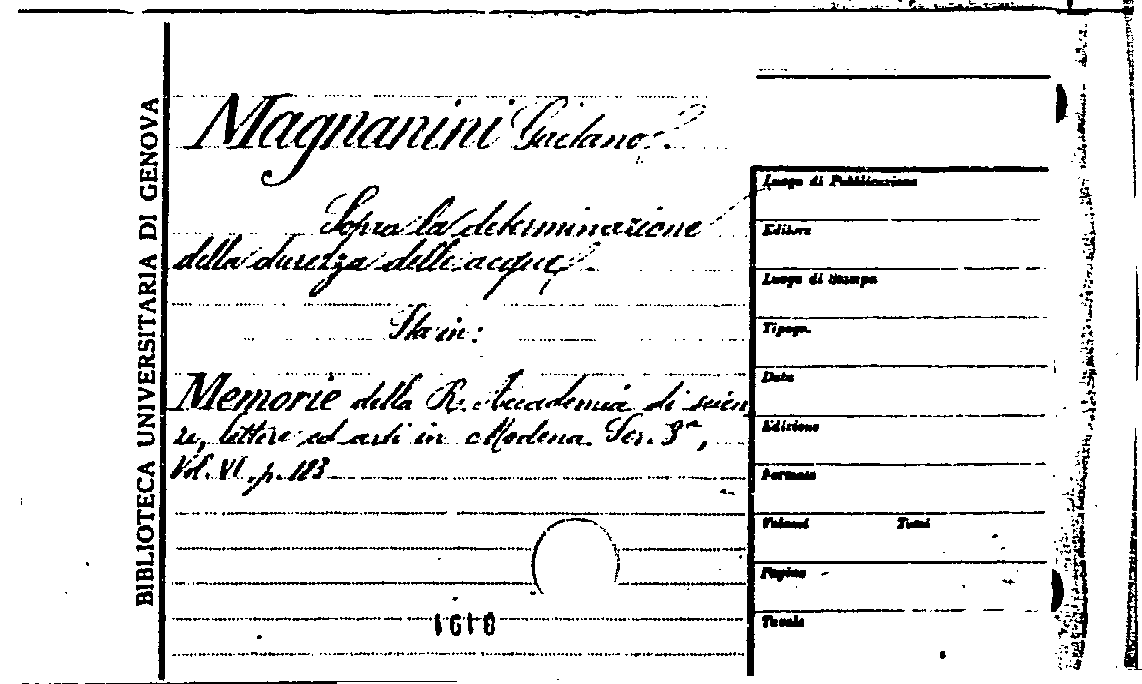 BIBLIOTECA UNIVERSITARIA DI GENOVA
Magnanini Gaetano.
Sopra la determinazione
della durezza delle acque.
Sta in:
Memorie della R. Accademia di scien
ze, lettere ed arti in Modena. Ser. 3ª,
Vol. VI. p. 183
Luogo di Pubblicazione
Editore
Luogo di Stampa
Tipogr.
Data
Edizione
Formato
Volumi Tomi
Pagine
Tavole